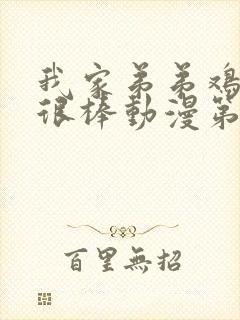 我家弟弟鸡
很棒動漫第
百里無招